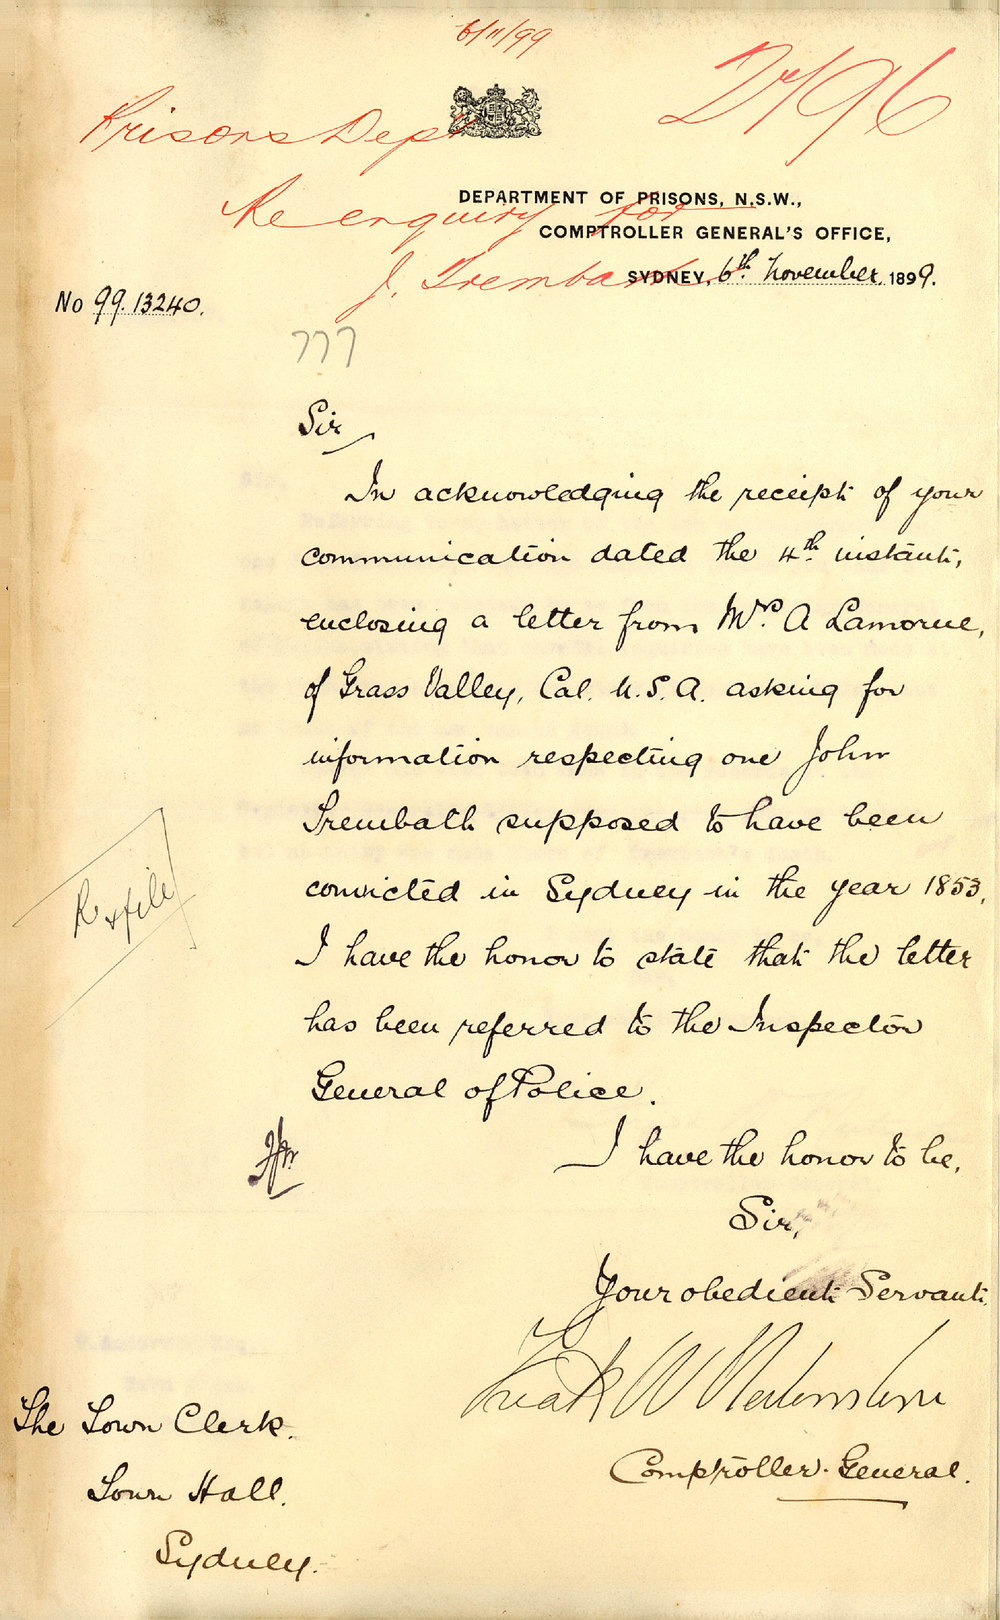 6/11/99
2796
Prisons Dept
DEPARTMENT OF PRISONS, N.S.W.,
Re enquiry for
COMPTROLLER GENERAL'S OFFICE,
J. Trembath
SYDNEY, 6th. November. 1899.
No 99.13240.
777
Sir
In acknowledging the receipt of your
communication dated the 4th. instant,
enclosing a letter from Mrs. A Lamorue,
of Grass Valley, Cal. U.S.A. asking for
information respecting one John
Trembath supposed to have been
convicted in Sydney in the year 1853,
I have the honor to state that the letter
has been referred to the Inspector
General of Police.
R & file
I have the honor to be,
Sir,
Your obedient Servant.
Comptroller-General.
The Town Clerk.
Town Hall.
Sydney.